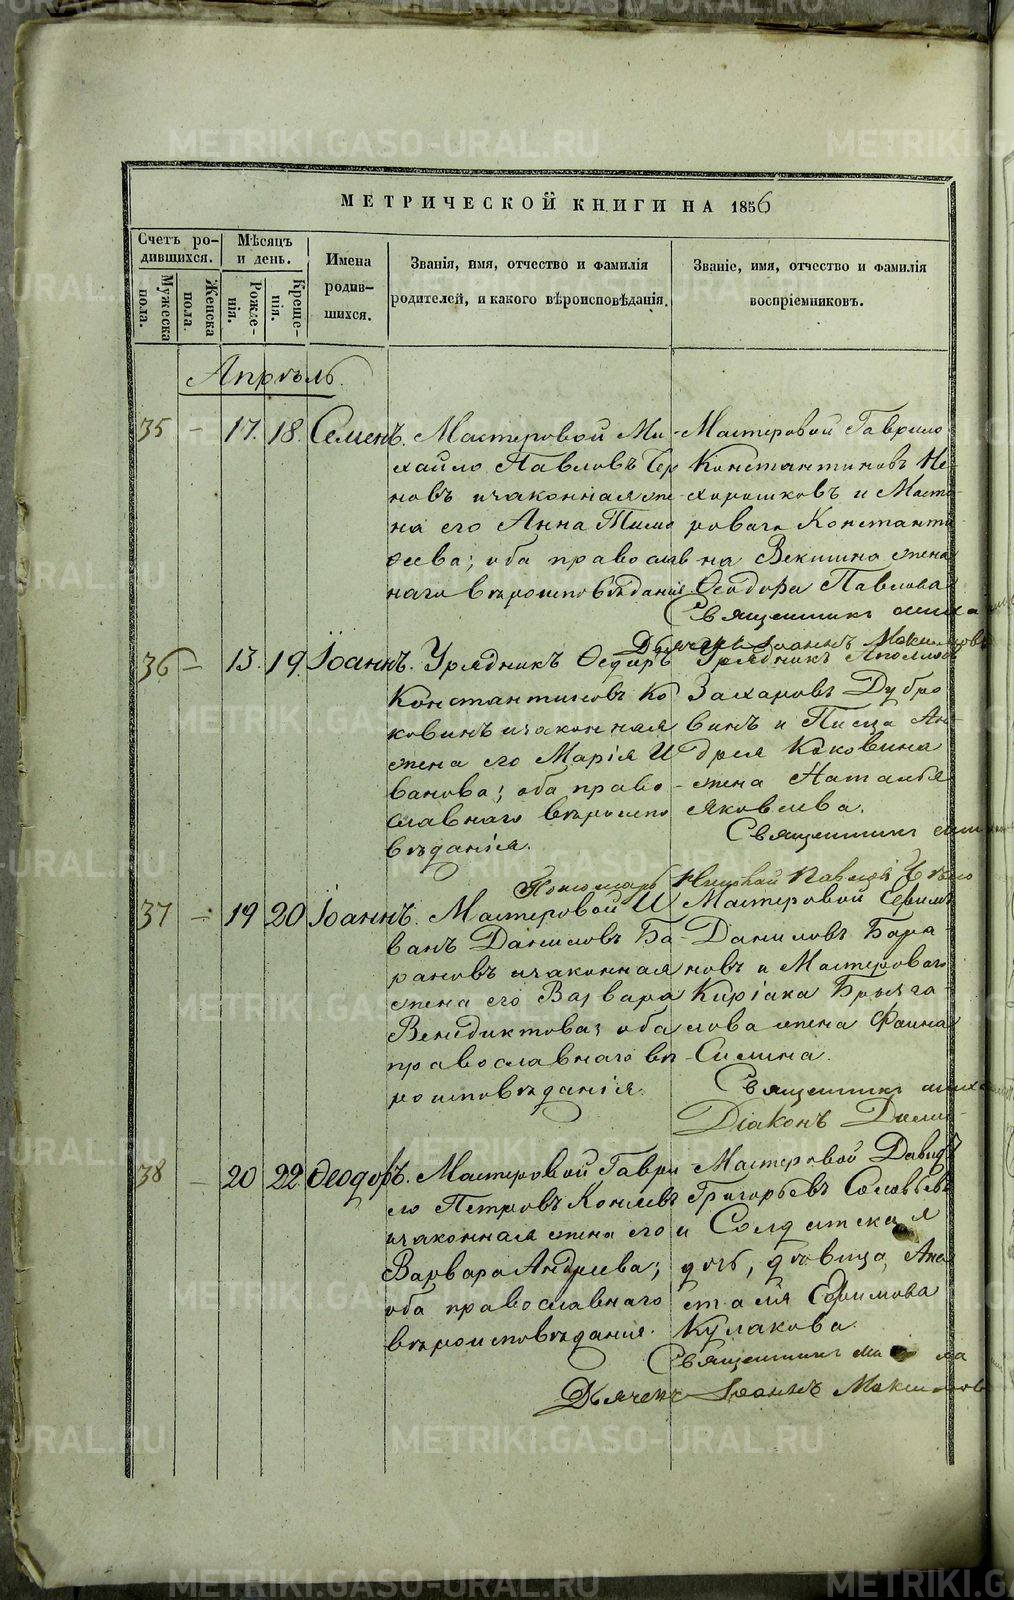 МЕТРИЧЕСКОЙ КНИГИ НА 1856
Счетъ родившихся.
Мужеска пола.
Женска пола.
Мѣсяцъ и день.
Рожденія.
Крещенія.
Имена родившихся.
Званія, имя, отчество и фамилія родителей, и какого вѣроисповѣданія.
Званіе, имя, отчество и фамилія воспріемниковъ.
Апрѣль.
35 – 17. 18. Семенъ.
Мастеровой Ми-
хайло Павловъ Чер
новъ изаконная же-
на его Анна Тимо
ѳеева; оба православ
наго вѣроисповѣданія
Мастеровой Гаврило
Константиновъ Не-
хорошковъ и Масте-
роваго Константи
на Векшина жена
Ѳеодора Павлова
Священникъ
Дьячекъ Іоаннъ Максимовъ
36 – 13. 19. Іоаннъ.
Урядникъ Ѳедоръ
Константиновъ Ко
ковинъ изаконная
жена его Марія И
ванова; оба право-
славнаго вѣроиспо
вѣданія.
Урядникъ Аполлонъ
Захаровъ Дубро
винъ и Писца Ан
дрея Коковина
жена Наталья
Яковлева.
Священникъ
Пономарь Николай
37 – 19 20 Іоаннъ.
Мастеровой И
ванъ Даниловъ Ба-
рановъ изаконная
жена его Варвара
Венедиктова; оба
православнаго вѣ-
роисповѣданія.
Мастеровой Ефимъ
Даниловъ Бара-
новъ и Мастероваго
Киріака Брызга-
лова жена Фаина
Силина.
Священникъ
Діаконъ
38 – 20 22 Ѳеодоръ.
Мастеровой Гаври
ло Петровъ Коневъ
изаконная жена его
Варвара Андреева;
оба православнаго
вѣроисповѣданія.
Мастеровой Давидъ
Григорьевъ Соловьевъ
и Солдатская
дочь, дѣвица, Ана
стасія Ефимова
Кулакова.
Священникъ
Дьячекъ Іоаннъ Максимовъ
METRIKI.GASO-URAL.RU